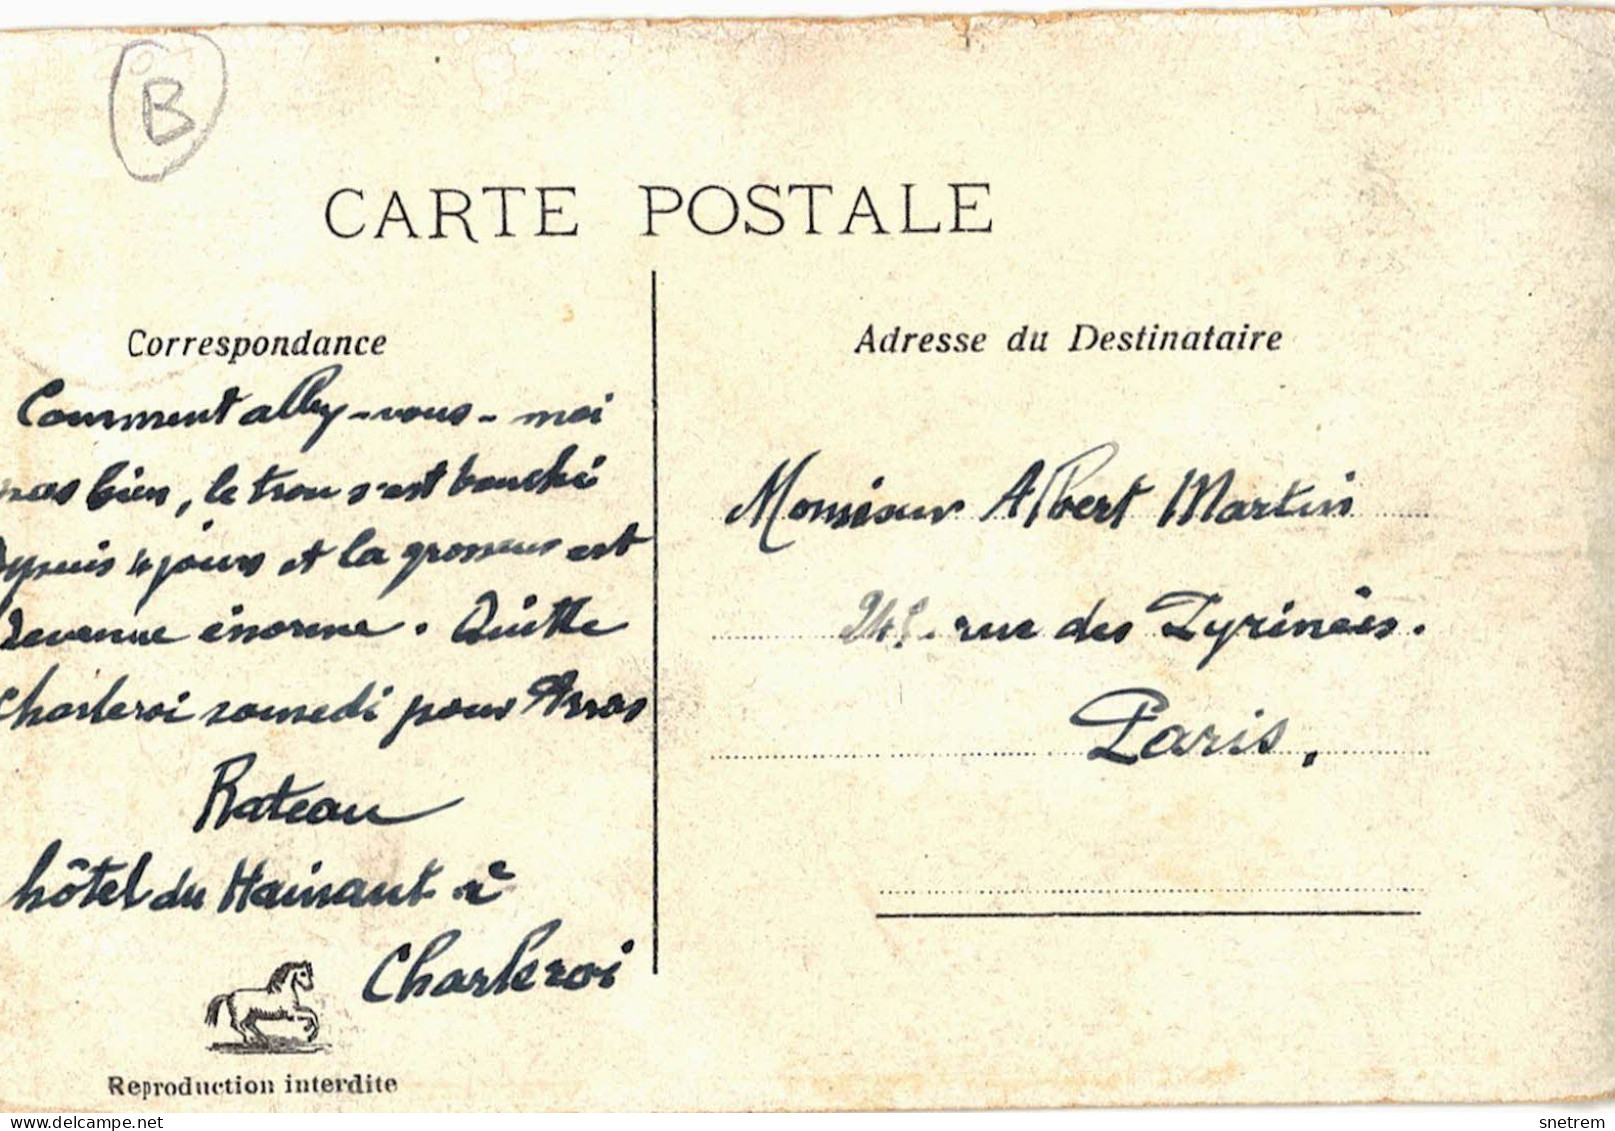 B
CARTE POSTALE
Correspondance
Comment allez-vous - moi
pas bien, le trou s'est bouché
depuis 4 jours et la grosseur est
devenue énorme. Quitte
Charleroi samedi pour Arras
Rateau
hôtel du Hainaut à
Charleroi
Reproduction interdite
Adresse du Destinataire
Monsieur Albert Martin
rue des Pyrénées.
Paris.
delcampe.net
snetrem